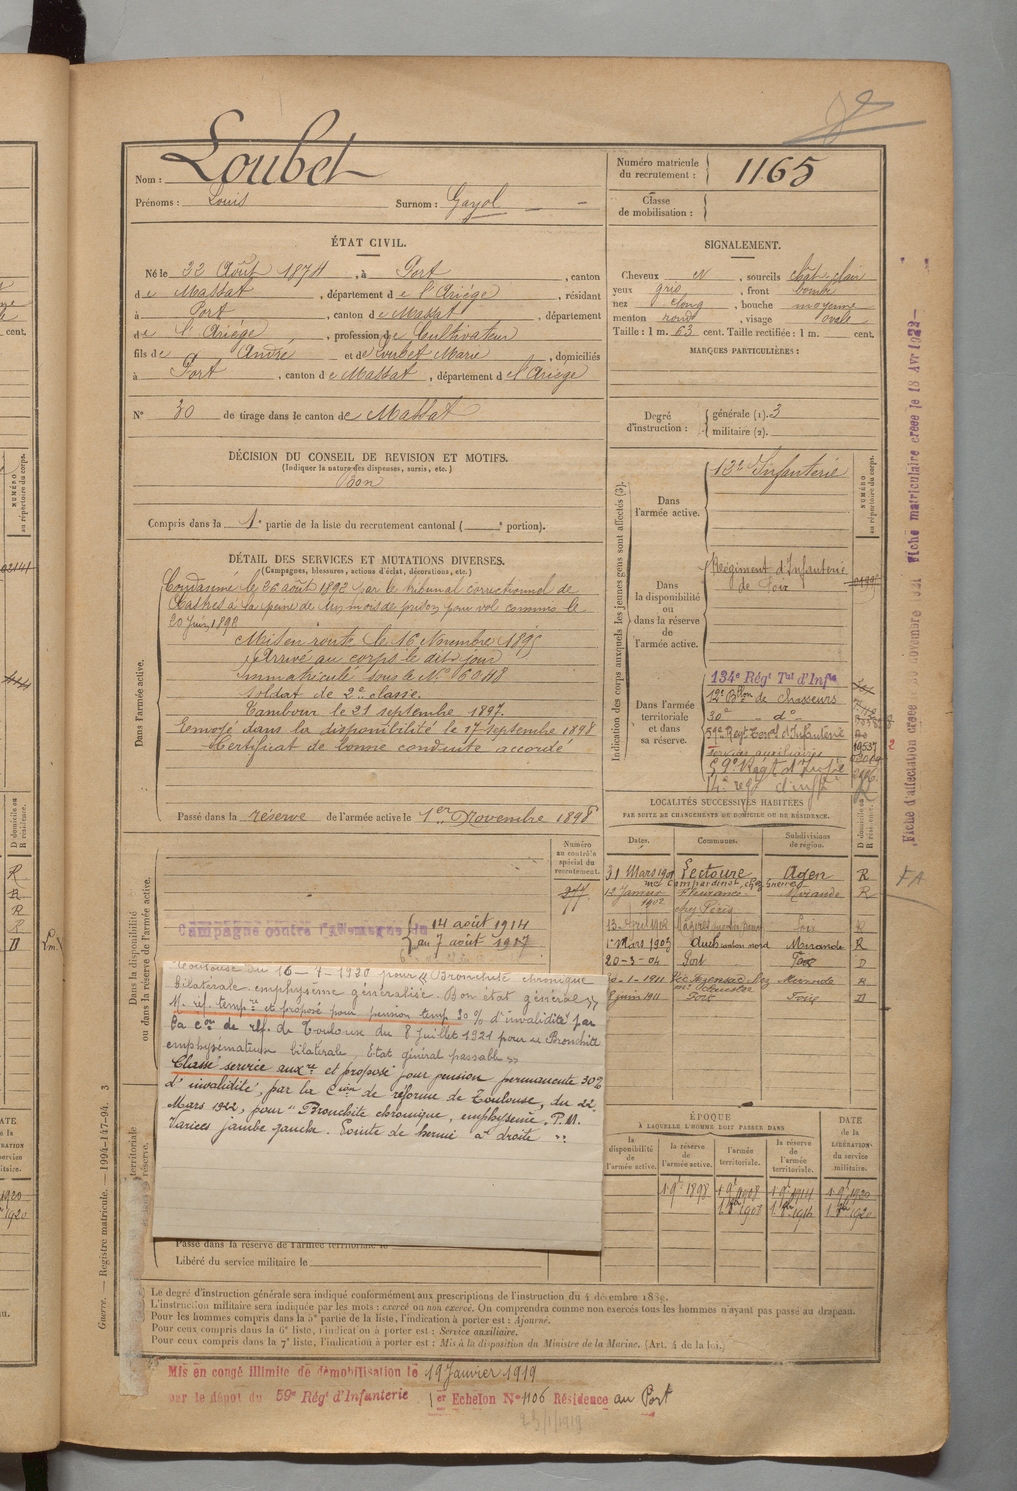 Nom : Loubet
Prénoms : Louis Surnom : Gayol
Numéro matricule du recrutement : 1165
Classe de mobilisation :
ÉTAT CIVIL.
Né le 22 Août 1874, à Port, canton
de Massat, département de l'Ariège, résidant
à Port, canton de Massat, département
de l'Ariège, profession de Cultivateur
fils de André et de Loubet Marie, domiciliés
à Port, canton de Massat, département de l'Ariège
N° 30 de tirage dans le canton de Massat
SIGNALEMENT.
Cheveux N, sourcils chât-clair
yeux gris, front bombé
nez long, bouche moyenne
menton rond, visage ovale
Taille : 1 m. 63 cent. Taille rectifiée : 1 m. cent.
MARQUES PARTICULIÈRES :
Degré d'instruction : générale (1). 3
militaire (2).
DÉCISION DU CONSEIL DE REVISION ET MOTIFS.
(Indiquer la nature des dispenses, sursis, etc.)
Bon
Compris dans la 1e partie de la liste du recrutement cantonal ( e portion).
DÉTAIL DES SERVICES ET MUTATIONS DIVERSES.
(Campagnes, blessures, actions d'éclat, décorations, etc.)
Dans l'armée active.
Condamné le 26 août 1892 par le tribunal correctionnel de
Castres à la peine de six mois de prison pour vol commis le
20 Juin 1892
Mis en route le 16 Novembre 1895
Arrivé au corps le dit jour
Immatriculé sous le N° 6048
Soldat de 2e classe.
Tambour le 21 septembre 1897.
Envoyé dans la disponibilité le 17 septembre 1898
Certificat de bonne conduite accordé
Passé dans la réserve de l'armée active le 1er Novembre 1898
Indication des corps auxquels les jeunes gens sont affectés (3).
NUMÉRO au répertoire du corps.
Dans l'armée active.
13e Infanterie
Dans la disponibilité ou dans la réserve de l'armée active.
Régiment d'Infanterie
de Foix
Dans l'armée territoriale et dans sa réserve.
134e Régt Tal d'Infie
12e Bton de Chasseurs
30e d°
59e Regt Terral d'Infanterie
services auxiliaires
59e Regt d'Infie
14e regt d'infie
LOCALITÉS SUCCESSIVES HABITÉES
PAR SUITE DE CHANGEMENTS DE DOMICILE OU DE RÉSIDENCE.
Dates. Communes. Subdivisions de région. D domicile ou R résidence.
31 Mars 1901 Lectoure Agen R
1902 Fleurance Mirande R
13 Avril 1902 Foix R
1 Mars 1903 Auch canton nord Mirande R
20-3-04 Port Foix D
1911 Mirande R
8 juin 1911 Port Foix D
Numéro au contrôle spécial du recrutement.
Dans la disponibilité ou dans la réserve de l'armée active.
Campagne contre l'Allemagne du 14 août 1914
au 7 août 1917
Toulouse du 16-4-1920 pour "Bronchite chronique
bilatérale emphysème généralisé. Bon état général"
M. réf. tempre et proposé pour pension temp. 30 % d'invalidité par
la con de réf. de Toulouse du 8 Juillet 1921 pour "Bronchite
emphysémateuse bilatérale, Etat général passable"
Classé service auxre et proposé pour pension permanente 30%
d'invalidité, par la Cion de réforme de Toulouse, du 22
Mars 1922, pour "Bronchite chronique, emphysème. P.M.
Varices jambe gauche. Pointe de hernie à droite"
ÉPOQUE
À LAQUELLE L'HOMME DOIT PASSER DANS
la disponibilité de l'armée active. la réserve de l'armée active. l'armée territoriale. la réserve de l'armée territoriale. DATE de la LIBÉRATION du service militaire.
1 9bre 1898 1 9bre 1908 1 9bre 1914 1 9bre 1920
Passé dans la réserve de l'armée territoriale le
Libéré du service militaire le
Le degré d'instruction générale sera indiqué conformément aux prescriptions de l'instruction du 4 décembre 1889.
L'instruction militaire sera indiquée par les mots : exercé ou non exercé. On comprendra comme non exercés tous les hommes n'ayant pas passé au drapeau.
Pour les hommes compris dans la 5e partie de la liste, l'indication à porter est : Ajourné.
Pour ceux compris dans la 6e liste, l'indication à porter est : Service auxiliaire.
Pour ceux compris dans la 7e liste, l'indication à porter est : Mis à la disposition du Ministre de la Marine. (Art. 4 de la loi.)
Mis en congé illimité de démobilisation le 19 Janvier 1919
par le dépôt du 59e Régt d'Infanterie 1er Echelon N° 1106 Résidence au Port
23/1/1919
Guerre. — Registre matricule. — 1994-147-94. 3
Fiche matriculaire créée le 18 Avr 1922
Fiche d'affectation créée novembre 1921
FA